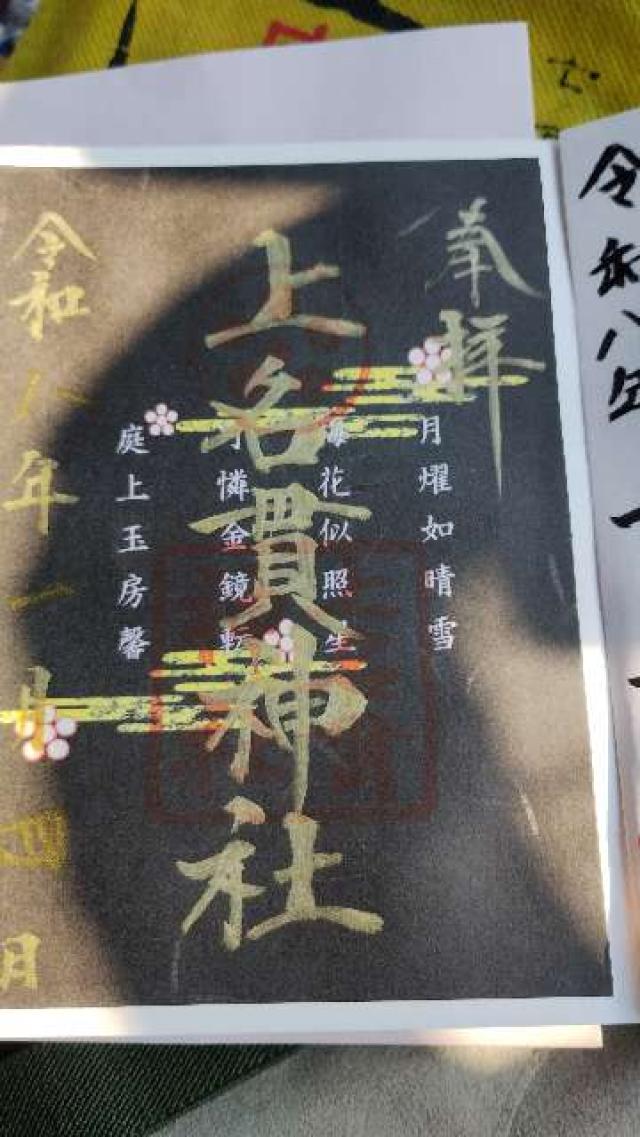 令和八年一
奉拝
月耀如晴雪
梅花似照星
上名貫神社
可憐金鏡転
庭上玉房馨
令和八年一月四日